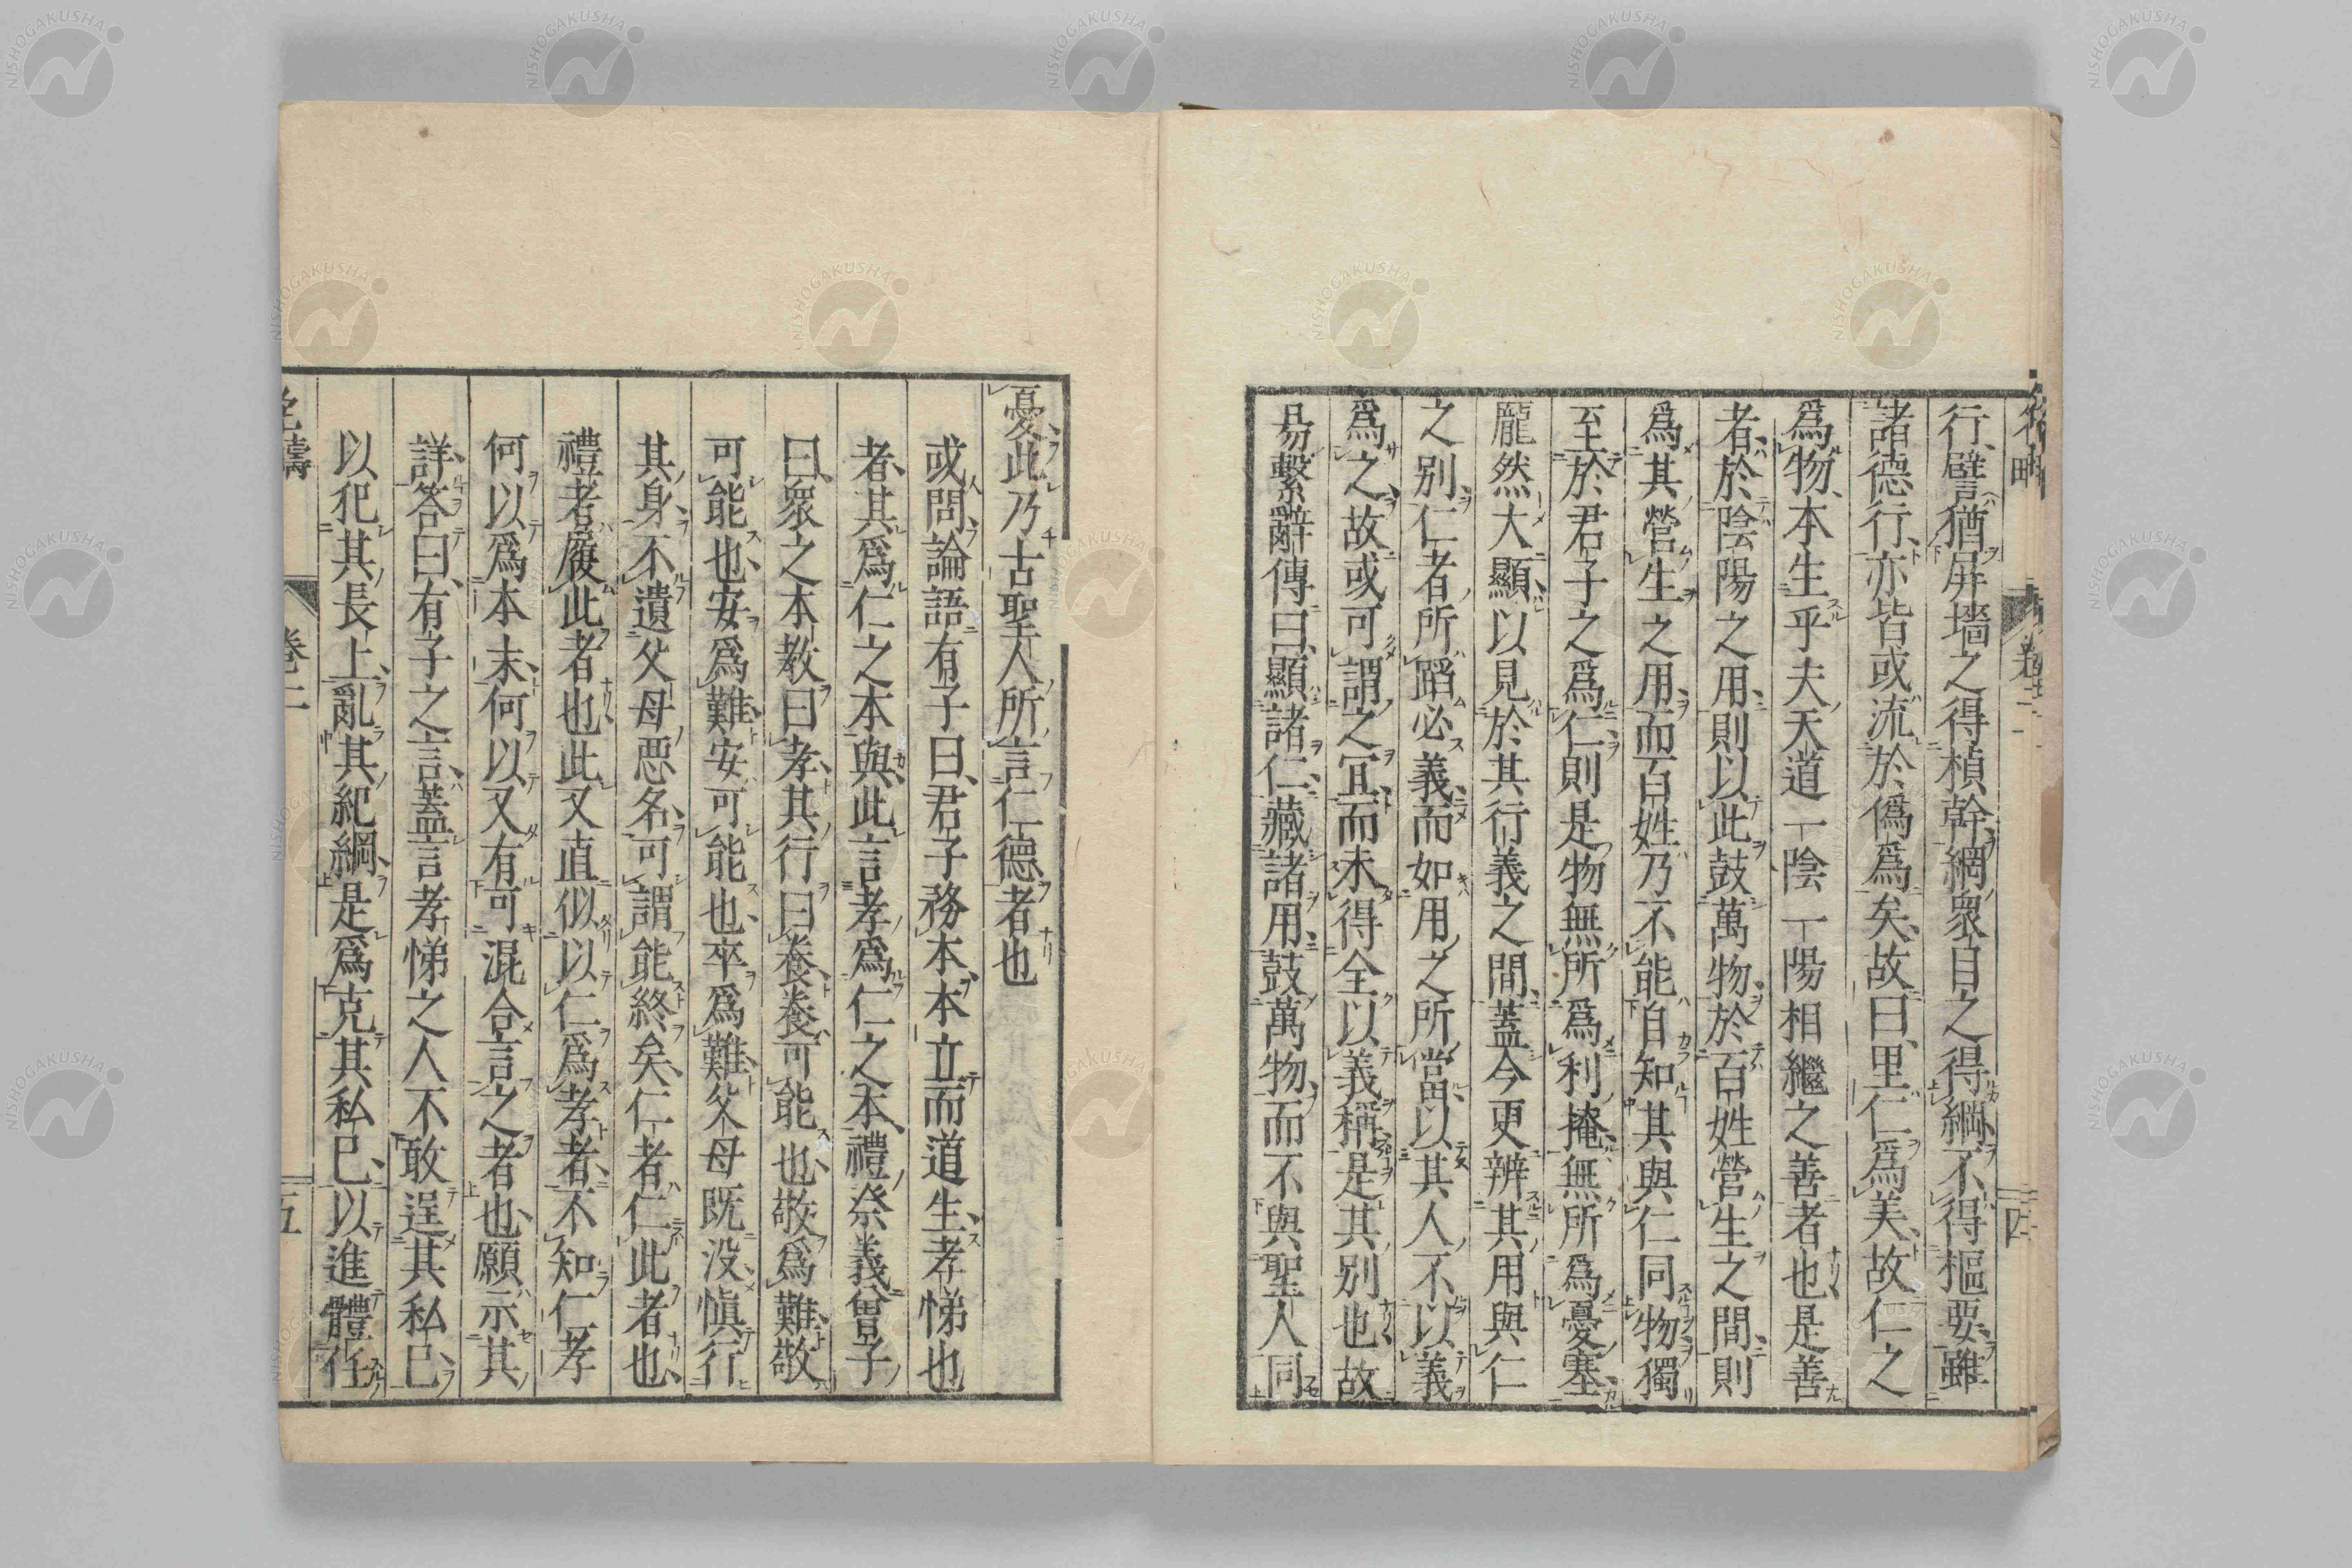 行、譬猶屏墻之得楨幹、綱衆目之得綱、不得樞要、雖
諸德行、亦皆或流於僞爲矣、故曰、里仁爲美、故仁之
爲物、本生乎夫天道一陰一陽相繼之善者也、是善
者、於陰陽之用、則以此鼓萬物、於百姓營生之間、則
爲其營生之用、而百姓乃不能自知其與仁同物、獨
至於君子之爲仁、則是物無所爲利掩、無所爲憂塞、
龐然大顯、以見於其行義之間、蓋今更辨其用與仁
之別、仁者所蹈必義、而如用之所當、以其人不以義
爲之、故或可謂之宜、而未得全以義稱、是其別也、故
易繫辭傳曰、顯諸仁、藏諸用、鼓萬物、而不與聖人同
憂、此乃古聖人所言仁德者也
或問、論語有子曰、君子務本、本立而道生、孝悌也
者、其爲仁之本與、此言孝爲仁之本、禮祭義曾子
曰、衆之本教曰孝、其行曰養、養可能也、敬爲難、敬
可能也、安爲難、安可能也、卒爲難、父母既沒、愼行
其身、不遺父母惡名、可謂能終矣、仁者仁此者也、
禮者履此者也、此又直似以仁爲孝者、不知仁孝
何以爲本末、何以又有可混合言之者也、願示其
詳、答曰、有子之言、蓋言孝悌之人不敢逞其私己、
以犯其長上、亂其紀綱、是爲克其私己、以進體任
卷二
五
卷二
四
NISHOGAKUSHA